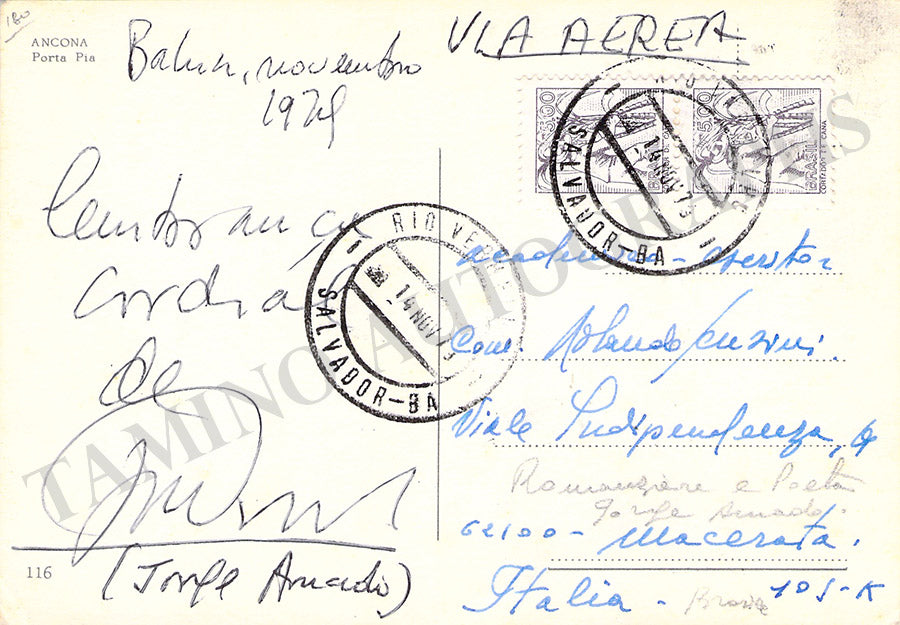 180
ANCONA
Porta Pia
Bahia, novembro
1979
VIA AEREA
Lembrança
cordial
de
(Jorge Amado)
116
5,00
BRASIL
CORTADOR DE CANA
5,00
BRASIL
CORTADOR DE CANA
RIO VERMELHO
14 NOV 79
SALVADOR-BA
RIO VERMELHO
14 NOV 79
SALVADOR-BA
Com.
Viale Indipendenza,
Romanziere e Poeta
Jorge Amado.
62100 - Macerata.
Italia -
Brasile
TAMINO AUTOGRAPHS